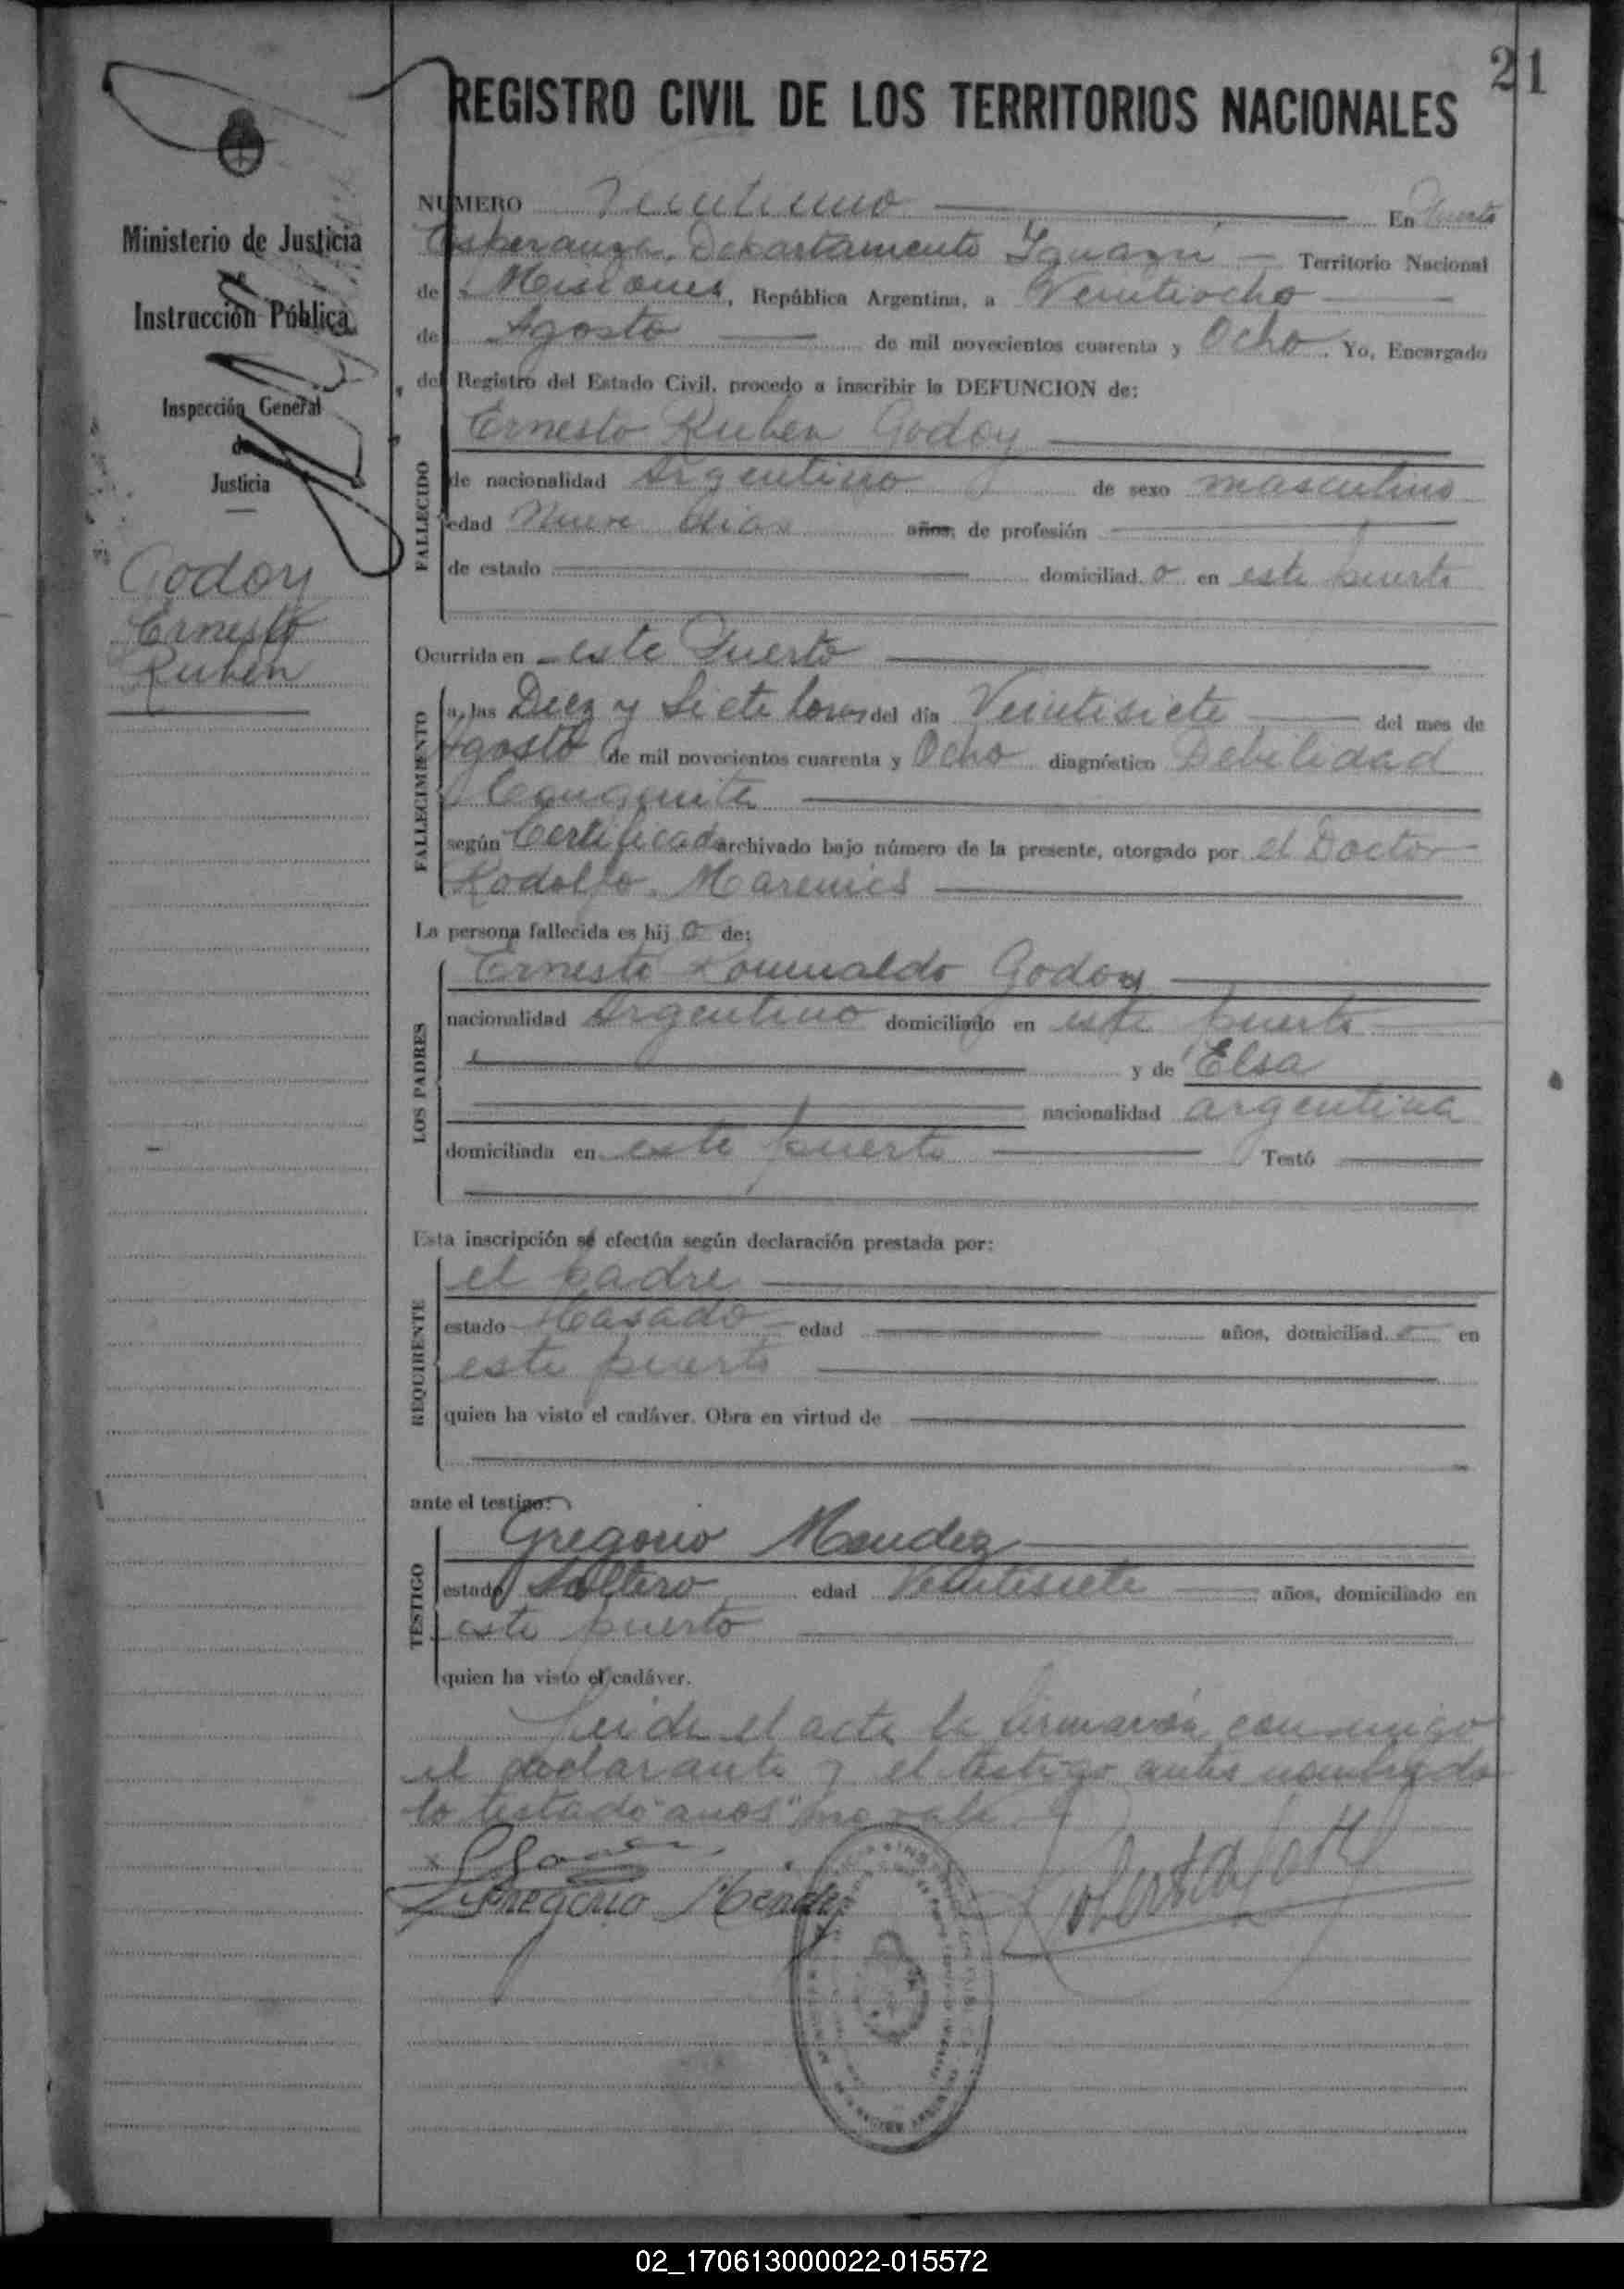 21
REGISTRO CIVIL DE LOS TERRITORIOS NACIONALES
Ministerio de Justicia
é
Instrucción Pública
Inspección General
de
Justicia
Godoy
Ernesto
Ruben
NUMERO Veintiuno En Puerto
Esperanza, Departamento Iguazú Territorio Nacional
de Misiones, República Argentina, a Veintiocho
de Agosto de mil novecientos cuarenta y Ocho. Yo, Encargado
del Registro del Estado Civil, procedo a inscribir la DEFUNCION de:
FALLECIDO
Ernesto Ruben Godoy
de nacionalidad Argentino de sexo masculino
edad Nueve dias años, de profesión
de estado domiciliad o en este puerto
Ocurrida en este Puerto
FALLECIMIENTO
a las Diez y Siete horas del día Veintisiete del mes de
Agosto de mil novecientos cuarenta y Ocho diagnóstico Debilidad
Congenita
según Certificado archivado bajo número de la presente, otorgado por el Doctor
Rodolfo
La persona fallecida es hij o de:
LOS PADRES
Ernesto Romualdo Godoy
nacionalidad Argentino domiciliado en este puerto
y de Elsa
nacionalidad argentina
domiciliada en este puerto Testó
Esta inscripción se efectúa según declaración prestada por:
REQUIRENTE
el padre
estado Casado edad años, domiciliad o en
este puerto
quien ha visto el cadáver. Obra en virtud de
ante el testigo:
TESTIGO
Gregorio Mendez
estado Soltero edad Veintisiete años, domiciliado en
este puerto
quien ha visto el cadáver.
Leida el acta la firmarón conmigo
el declarante y el testigo antes nombrado
lo testado "años" no vale
Gregorio Mendez
02_170613000022-015572